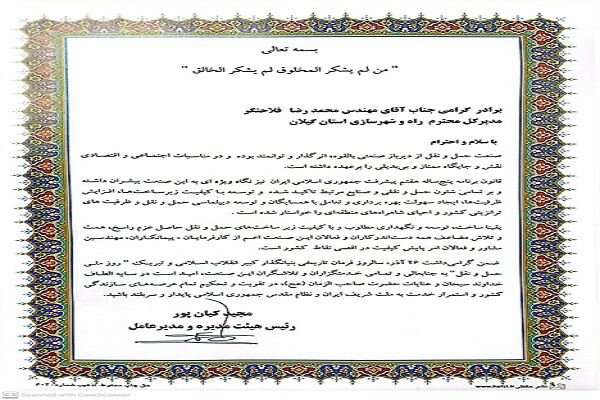 بسمه تعالی
" من لم یشکر المخلوق لم یشکر الخالق "
برادر گرامی جناب آقای مهندس محمد رضا فلاحتگر
مدیرکل محترم راه و شهرسازی استان گیلان
با سلام و احترام
صنعت حمل و نقل از دیرباز صنعتی بالقوه، اثرگذار و توانمند بوده و در مناسبات اجتماعی و اقتصادی
نقش و جایگاه ممتاز و بی‌بدیلی را برعهده داشته است.
قانون برنامه پنج‌ساله هفتم پیشرفت جمهوری اسلامی ایران نیز نگاه ویژه ای به این صنعت پیشران داشته
و بر تمامی شئون حمل و نقلی و صنایع مرتبط تاکید شده، و توسعه با کیفیت زیرساخت‌ها، افزایش
ظرفیت‌ها، ایجاد سهولت بهره برداری و تعامل با همسایگان و توسعه دیپلماسی حمل و نقل و ظرفیت های
ترانزیتی کشور و احیای شاهراه‌های منطقه‌ای را خواستار شده است.
یقینا ساخت، توسعه و نگهداری مطلوب و با کیفیت زیر ساخت‌های حمل و نقل حاصل عزم راسخ، همت
و تلاش مضاعف همه دست‌اندرکاران و فعالان این صنعت اعم از کارفرمایان، پیمانکاران، مهندسین
مشاور و فعالان امر پایش کیفیت در اقصی نقاط کشور است.
ضمن گرامی‌داشت ۲۶ آذر، سالروز فرمان تاریخی بنیانگذار کبیر انقلاب اسلامی و تبریک " روز ملی
حمل و نقل" به جنابعالی و تمامی خدمتگزاران و تلاشگران این صنعت، امید است در سایه الطاف
خداوند سبحان و عنایات حضرت صاحب الزمان (عج)، در تقویت و تحکیم تمام عرصه‌های سازندگی
کشور و استمرار خدمت به ملت شریف ایران و نظام مقدس جمهوری اسلامی پایدار و سربلند باشید.
مجید کیان پور
رئیس هیئت مدیره و مدیرعامل
CS Scanned with CamScanner